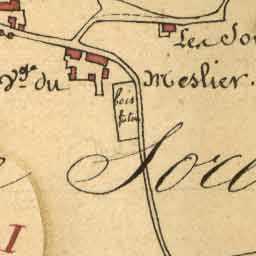 Les So
V.ge du Meslier.
bois
futaie
Soc
I